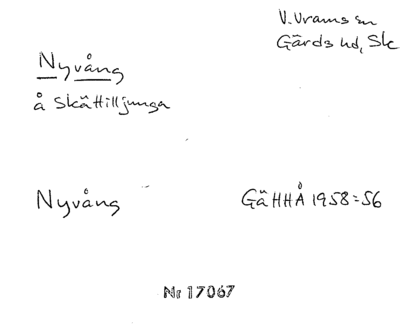 V. Vrams sn
Gärds hd, Sk
Nyvång
å Skättilljunga
Nyvång
GäHHÅ 1958:56
Nr 17067